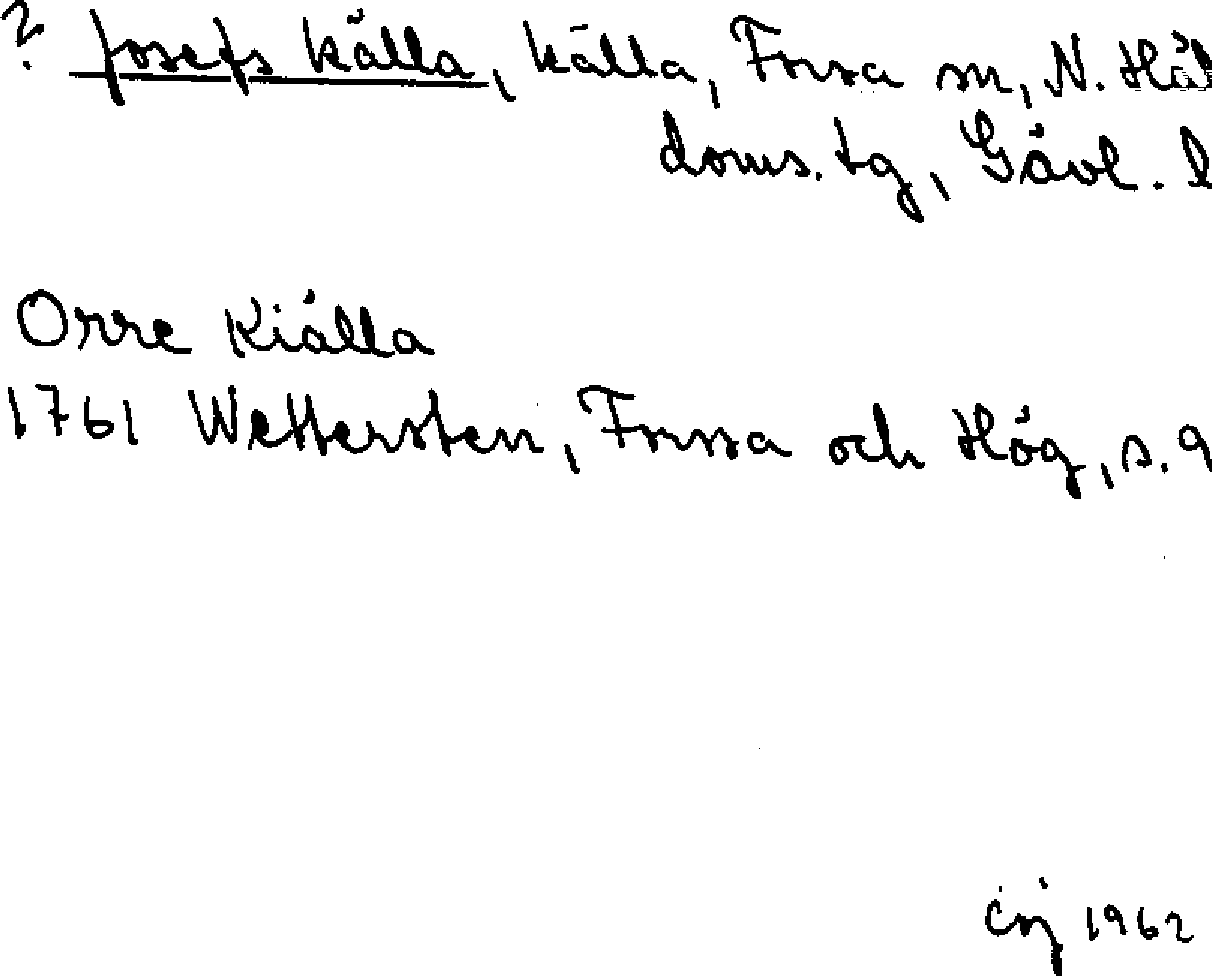 ? Josefs källa, källa, Forsa sn, N. Häl
doms. tg, Gävl. l
Orre Kiälla
1761 Wettersten, Forssa och Hög, s. 9
1962